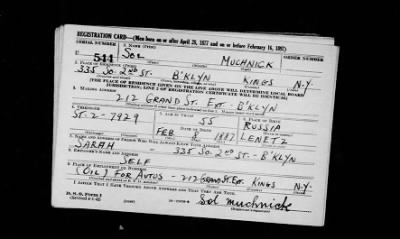 REGISTRATION CARD—(Men born on or after April 28, 1877 and on or before February 16, 1897)
SERIAL NUMBER 1. NAME (Print) ORDER NUMBER
U 544 SOL MUCHNICK
2. PLACE OF RESIDENCE (Print)
335 SO. 2ND ST. B'KLYN KINGS N.Y.
[THE PLACE OF RESIDENCE GIVEN ON THE LINE ABOVE WILL DETERMINE LOCAL BOARD
JURISDICTION; LINE 2 OF REGISTRATION CERTIFICATE WILL BE IDENTICAL]
3. MAILING ADDRESS
212 GRAND ST. EXT. - B'KLYN
4. TELEPHONE 5. AGE IN YEARS 6. PLACE OF BIRTH
ST-2-7929 55 RUSSIA
FEB 1887 LENETZ
7. NAME AND ADDRESS OF PERSON WHO WILL ALWAYS KNOW YOUR ADDRESS
SARAH 335 SO. 2ND ST. - B'KLYN
8. EMPLOYER'S NAME AND ADDRESS
SELF
9. PLACE OF EMPLOYMENT OR BUSINESS
(OIL) FOR AUTOS - 212 GRAND ST. EXT. KINGS N.Y.
I AFFIRM THAT I HAVE VERIFIED ABOVE ANSWERS AND THAT THEY ARE TRUE.
D. S. S. Form 1
Sol muchnick